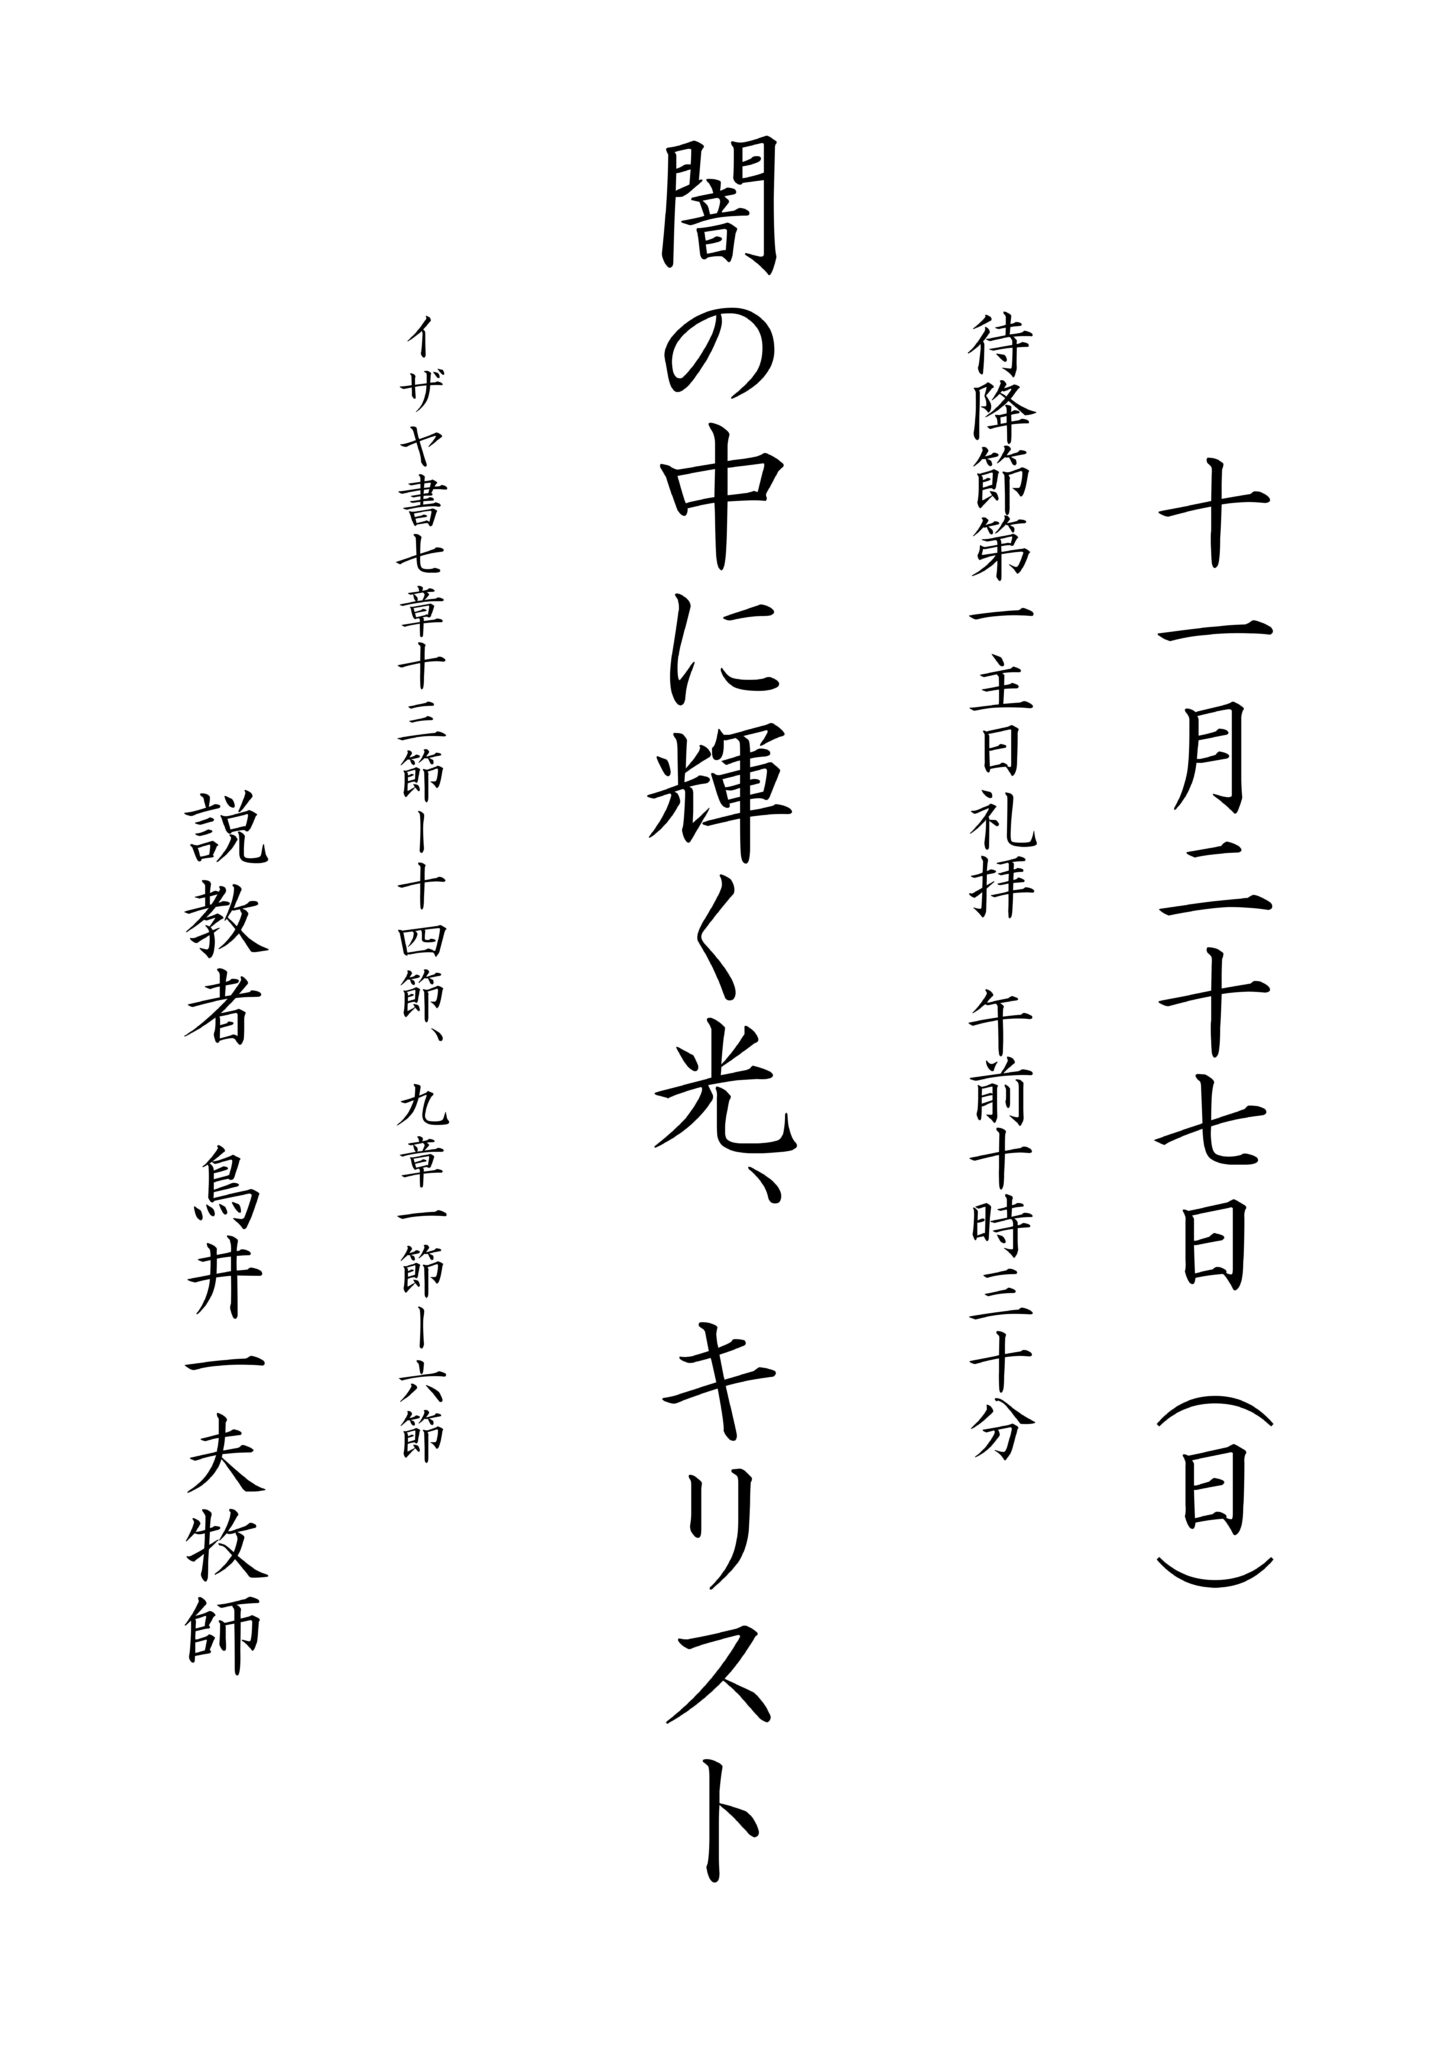 十一月二十七日（日）
待降節第一主日礼拝　午前十時三十分
闇の中に輝く光、キリスト
イザヤ書七章十三節ー十四節、九章一節ー六節
説教者　鳥井一夫牧師